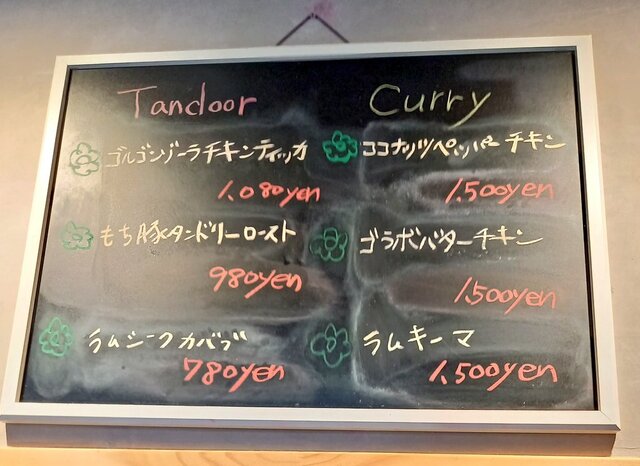 Tandoor
ゴルゴンゾーラチキンティッカ
1,080yen
もち豚タンドリーロースト
980yen
ラムシークカバブ
780yen
Curry
ココナッツペッパーチキン
1,500yen
ゴラポバターチキン
1,500yen
ラムキーマ
1,500yen